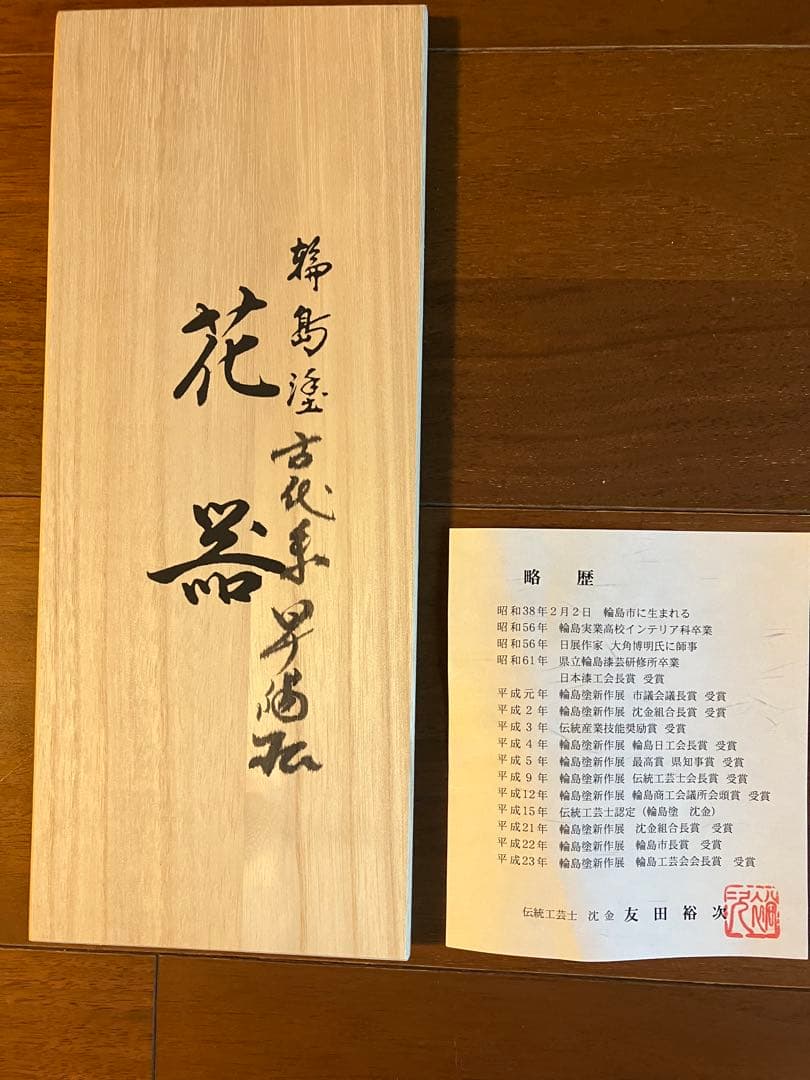 輪島塗
花器
略歴
昭和38年2月2日 輪島市に生まれる
昭和56年 輪島実業高校インテリア科卒業
昭和56年 日展作家 大角博明氏に師事
昭和61年 県立輪島漆芸研修所卒業
日本漆工会長賞 受賞
平成元年 輪島塗新作展 市議会議長賞 受賞
平成2年 輪島塗新作展 沈金組合長賞 受賞
平成3年 伝統産業技能奨励賞 受賞
平成4年 輪島塗新作展 輪島日工会長賞 受賞
平成5年 輪島塗新作展 最高賞 県知事賞 受賞
平成9年 輪島塗新作展 伝統工芸士会長賞 受賞
平成12年 輪島塗新作展 輪島商工会議所会頭賞 受賞
平成15年 伝統工芸士認定(輪島塗 沈金)
平成21年 輪島塗新作展 沈金組合長賞 受賞
平成22年 輪島塗新作展 輪島市長賞 受賞
平成23年 輪島塗新作展 輪島工芸会会長賞 受賞
伝統工芸士 沈金 友田裕次